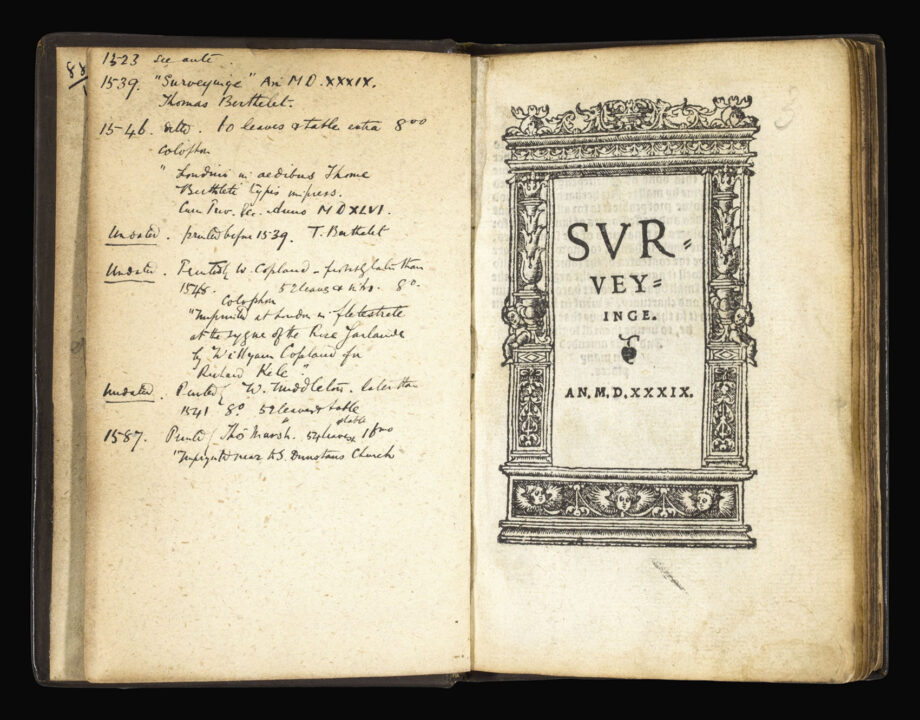 88
1523 see ante.
1539. "Surveyinge" An M D. XXXIX.
Thomas Berthelet.
1546. ditto. 60 leaves & table extra 8vo
Colophon
"Londini in aedibus Thome
Bertheleti typis impress.
Cum Priv. &c. Anno M DXLVI.
Undated. printed before 1539. T. Berthelet
Undated. Printed by W. Copland — than
1548. 52 leaves & 8o.
Colophon
"Imprinted at London in fletestrete
at the sygne of the Rose Garlande
by Wyllyam Copland for
Richard Kele".
Undated. Printed by W. Middleton. later than
1541 8o 52 leaves & table
1587. Printed by Tho Marsh. 54 leaves & table 16mo
"Imprynted near to S. Dunstans Church
SVR=
VEY=
INGE.
AN. M. D. XXXIX.